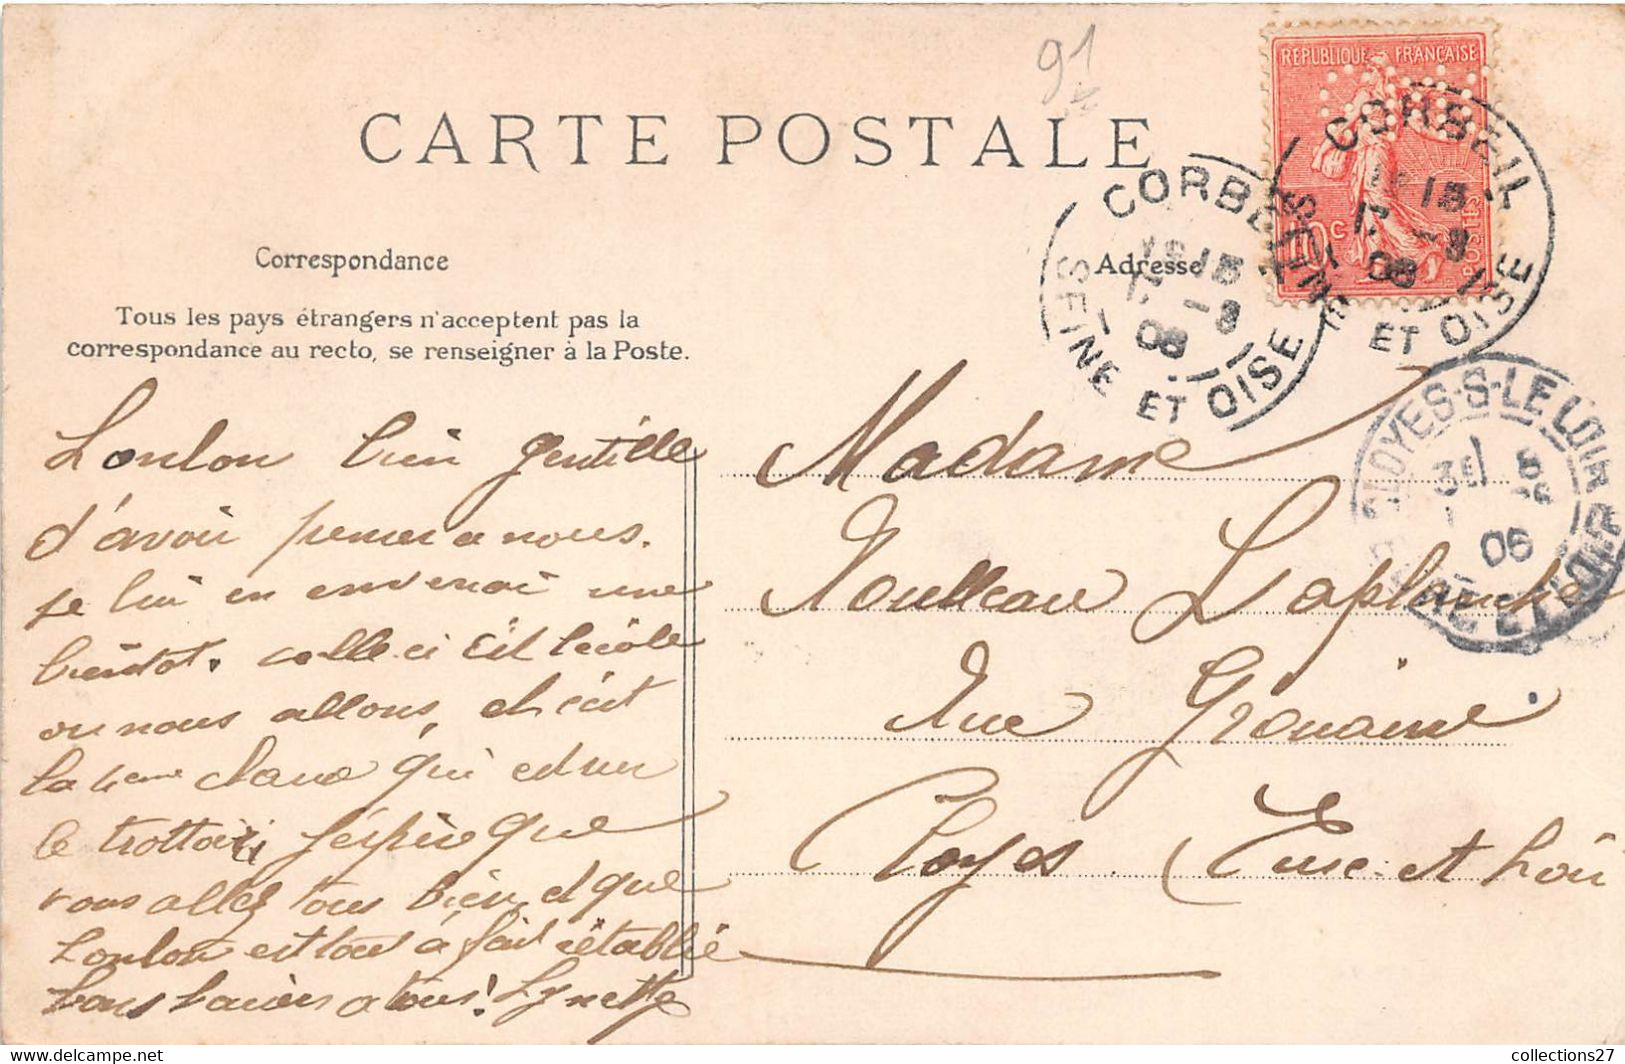 91
CARTE POSTALE
RÉPUBLIQUE FRANÇAISE
10c
POSTES
CORBEIL
15
-8
06
SEINE ET OISE
CORBEIL
15
-8
06
SEINE ET OISE
CLOYES-S-LE LOIR
06
EURE ET LOIR
Correspondance
Adresse
Tous les pays étrangers n'acceptent pas la
correspondance au recto, se renseigner à la Poste.
Loulou bien gentille
d'avoir penser a nous.
je lui en enverrai une
bientot. celle ci est l'école
ou nous allons, et c'est
la 4eme classe qui est sur
le trottoir, j'éspère que
vous allez tous bien, et que
Loulou est tout a fait rétablie
bons baisers a tous! Lynette
Madame
Roulleau Laplanche
Rue
Cloyes. Eure et Loir
collections27